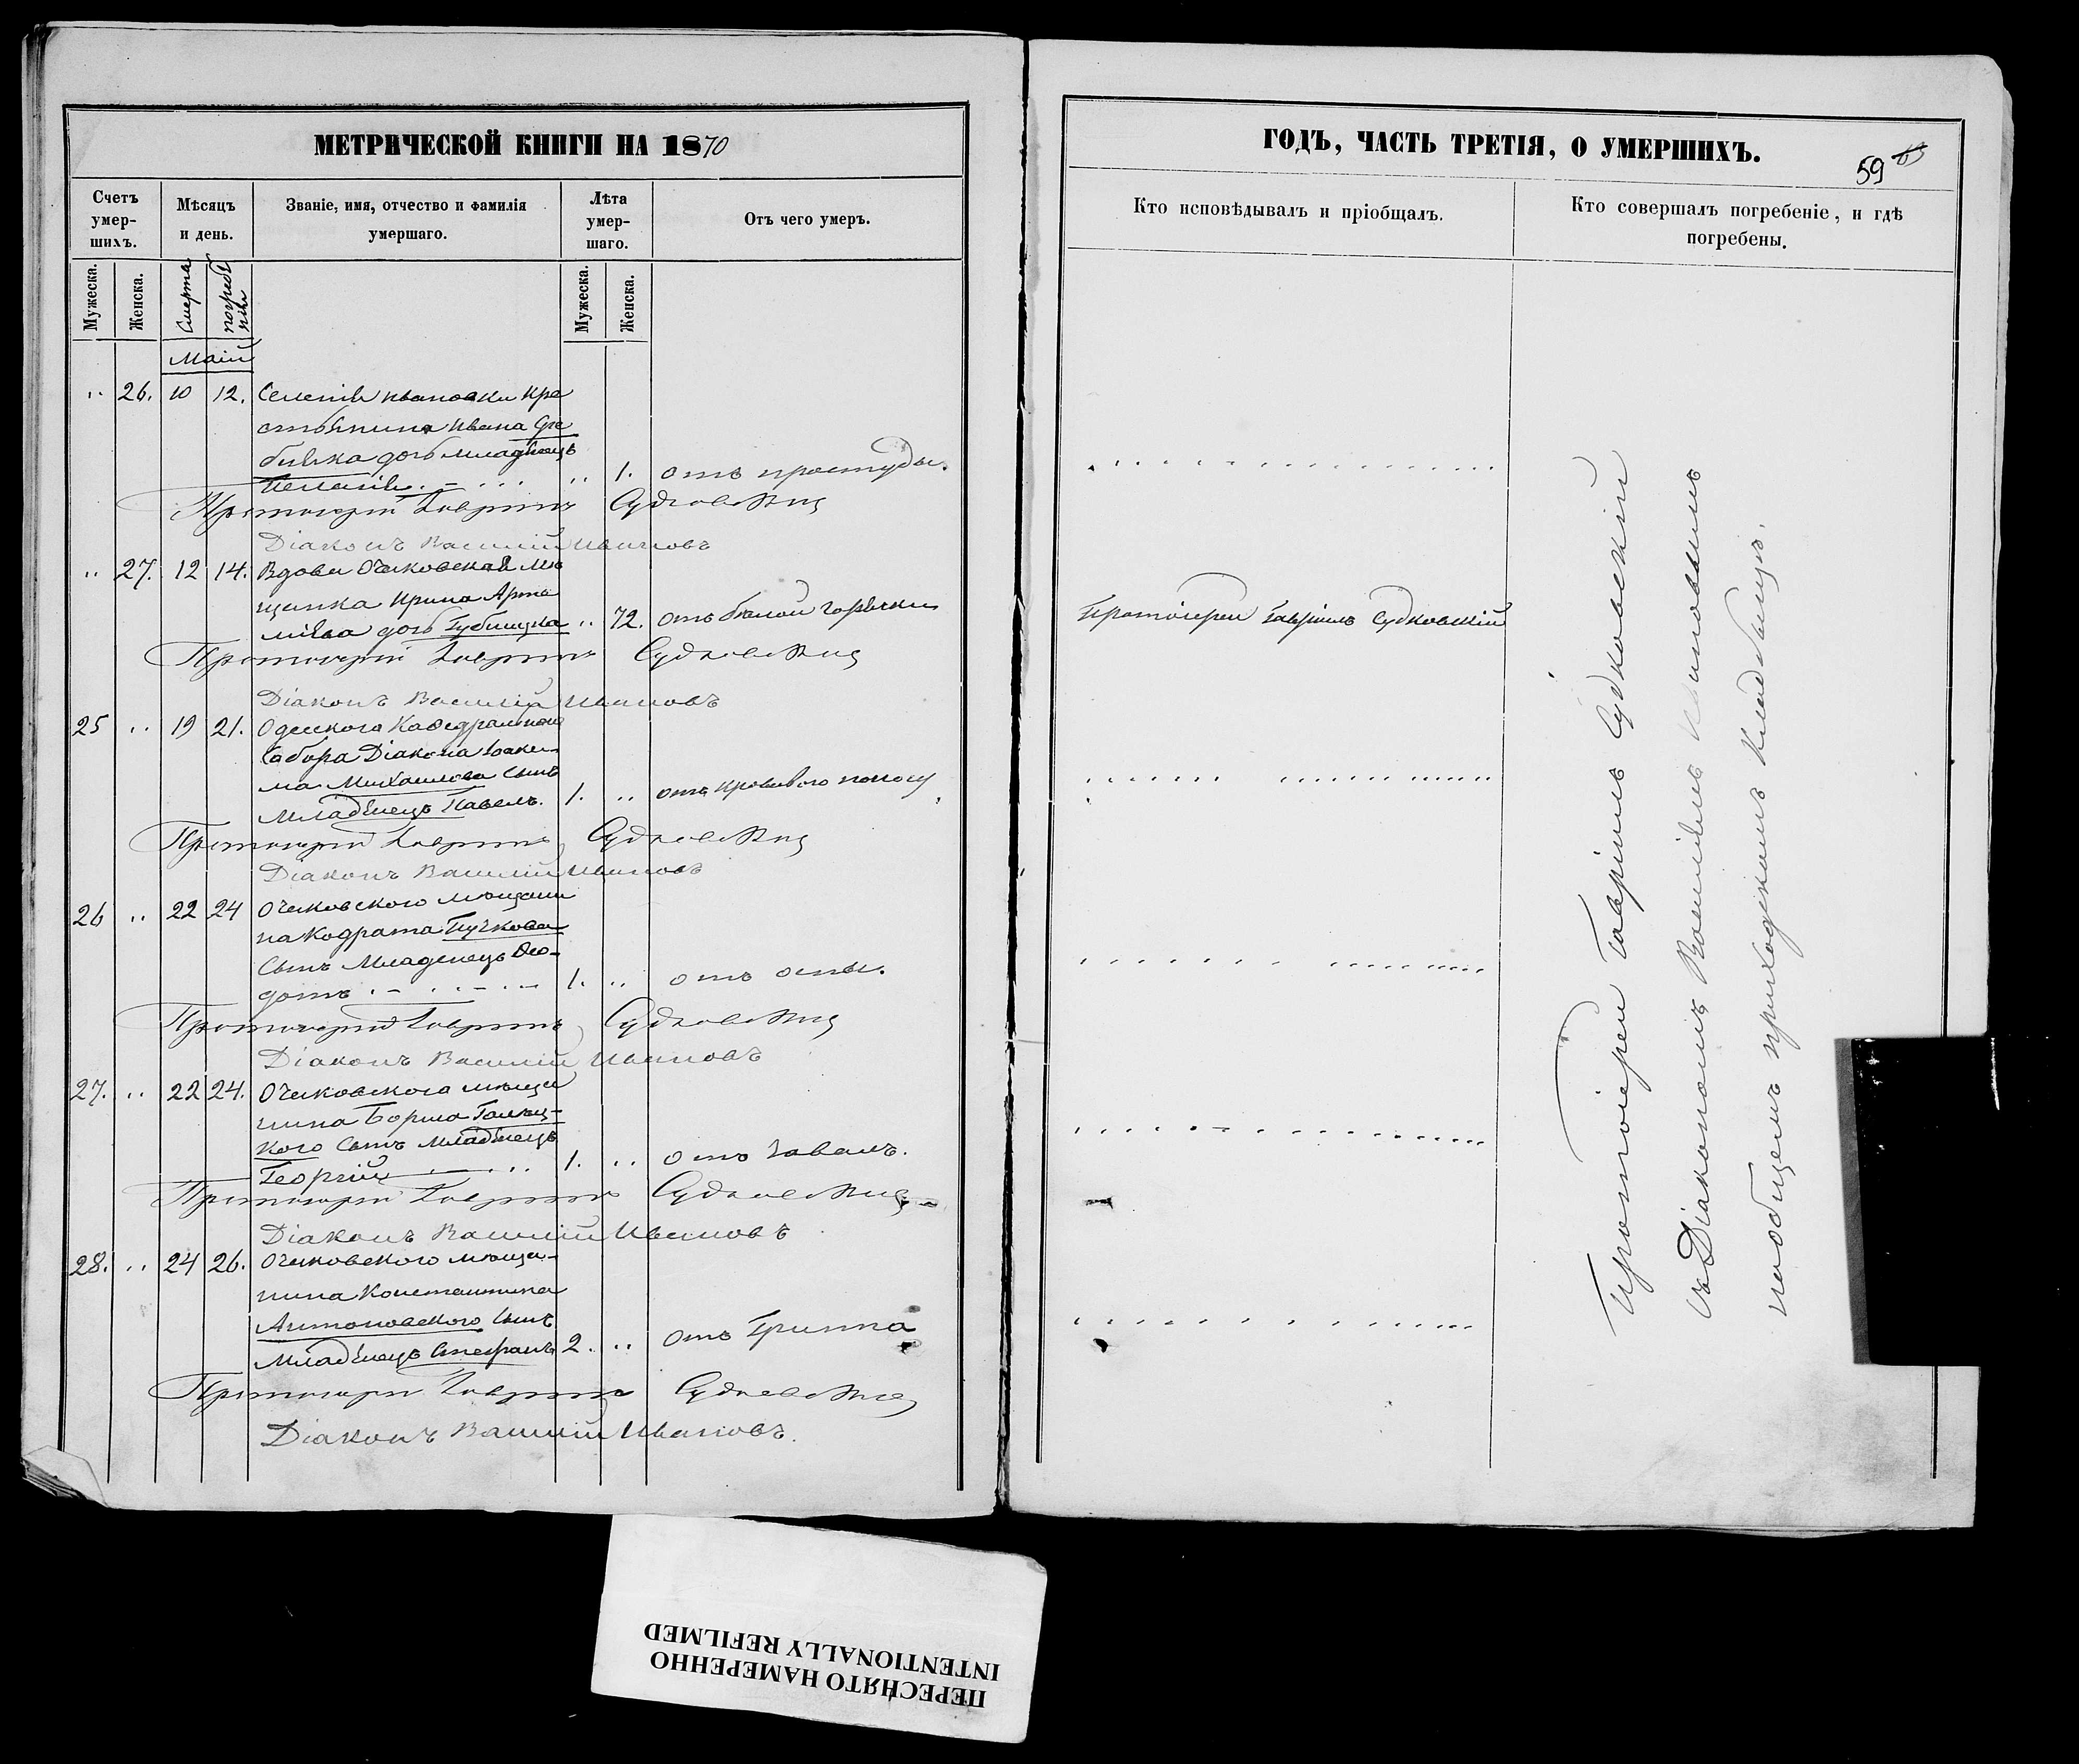 МЕТРИЧЕСКОЙ КНИГИ НА 1870
Счетъ умер-шихъ.
Мѣсяцъ и день.
Званіе, имя, отчество и фамилія умершаго.
Лѣта умер-шаго.
Отъ чего умеръ.
Мужеска.
Женска.
Смерти
погребенія
Мужеска.
Женска.
Маій
" 26. 10 12. Селенія Ивановки кре
стьянина Ивана
дочь младенецъ
Пелагія " 1. отъ простуды.
Протоіерей Гавріилъ Судковскій
Діаконъ Василій Ивановъ
" 27. 12 14. Вдова Очаковская мѣ
щанка Ирина Арте
міева дочь " 72. отъ бѣлой горячки
Протоіерей Гавріилъ Судковскій
Діаконъ Василій Ивановъ
25 " 19 21. Одесского Кафедральнаго
Собора Діакона Іоаки
ма Михаилова сынъ
Младенецъ Павелъ. 1. " отъ кроваваго поносу
Протоіерей Гавріилъ Судковскій
Діаконъ Василій Ивановъ
26 " 22 24 Очаковского мѣщани
на Кодрата Пучкова
сынъ Младенецъ Ѳео-
дотъ 1. " отъ оспы.
Протоіерей Гавріилъ Судковскій
Діаконъ Василій Ивановъ
27. " 22 24. Очаковского мѣща
нина Бориса Галиц-
кого сынъ Младенецъ
Георгій 1. " отъ
Протоіерей Гавріилъ Судковскій
Діаконъ Василій Ивановъ
28. " 24 26. Очаковского мѣща-
нина Константина
Антоновского сынъ
Младенецъ Стефанъ 2. " отъ Гриппа
Протоіерей Гавріилъ Судковскій
Діаконъ Василій Ивановъ.
ГОДЪ, ЧАСТЬ ТРЕТІЯ, О УМЕРШИХЪ.
59
Кто исповѣдывалъ и пріобщалъ.
Кто совершалъ погребеніе, и гдѣ погребены.
Протоіерей Гавріилъ Судковскій
Протоіерей Гавріилъ Судковскій
съ Діакономъ Василіемъ Ивановымъ
на общемъ приходскомъ кладбищѣ.
ПЕРЕСНЯТО НАМЕРЕННО
INTENTIONALLY REFILMED